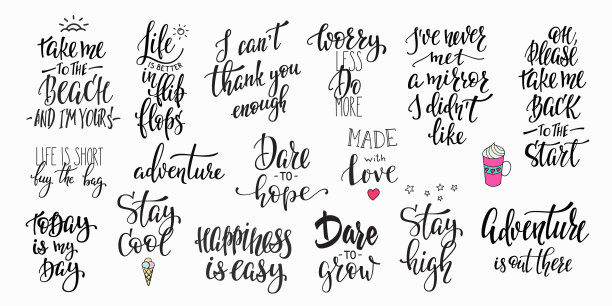 take me
TO THE
BEACH
-AND I'M YOURS-
Life
IS BETTER
in
flip
flops
I can't
thank you
enough
Worry
LESS
Do
MORE
I've never
met
a mirror
I didn't
like
OH,
Please
take me
BACK
-TO THE-
Start
LIFE IS SHORT
buy the bag
adventure
Dare
-TO-
hope
MADE
with
Love
today
is my
Day
Stay
Cool
HAPPINESS
is easy
Dare
-TO-
grow
Stay
high
Adventure
is out there